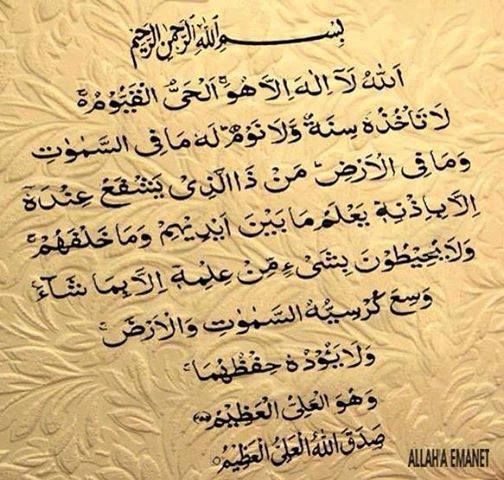 بِسْمِ اللهِ الرَّحْمٰنِ الرَّحِيمِ
اَللهُ لَٓا اِلٰهَ اِلَّا هُوَۚ اَلْحَىُّ الْقَيُّومُۚ
لَا تَأْخُذُهُ سِنَةٌ وَلَا نَوْمٌۜ لَهُ مَا فِى السَّمٰوَاتِ
وَمَا فِى الْاَرْضِۜ مَنْ ذَا الَّذِى يَشْفَعُ عِنْدَهُٓ
اِلَّا بِاِذْنِهِۜ يَعْلَمُ مَا بَيْنَ اَيْدِيهِمْ وَمَا خَلْفَهُمْۚ
وَلَا يُحِيطُونَ بِشَىْءٍ مِنْ عِلْمِهِٓ اِلَّا بِمَا شَٓاءَۚ
وَسِعَ كُرْسِيُّهُ السَّمٰوَاتِ وَالْاَرْضَۚ
وَلَا يَؤُدُهُ حِفْظُهُمَاۚ
وَهُوَ الْعَلِىُّ الْعَظِيمُ ﴿٢٥٥﴾
صَدَقَ اللهُ الْعَلِىُّ الْعَظِيمُ
ALLAH'A EMANET